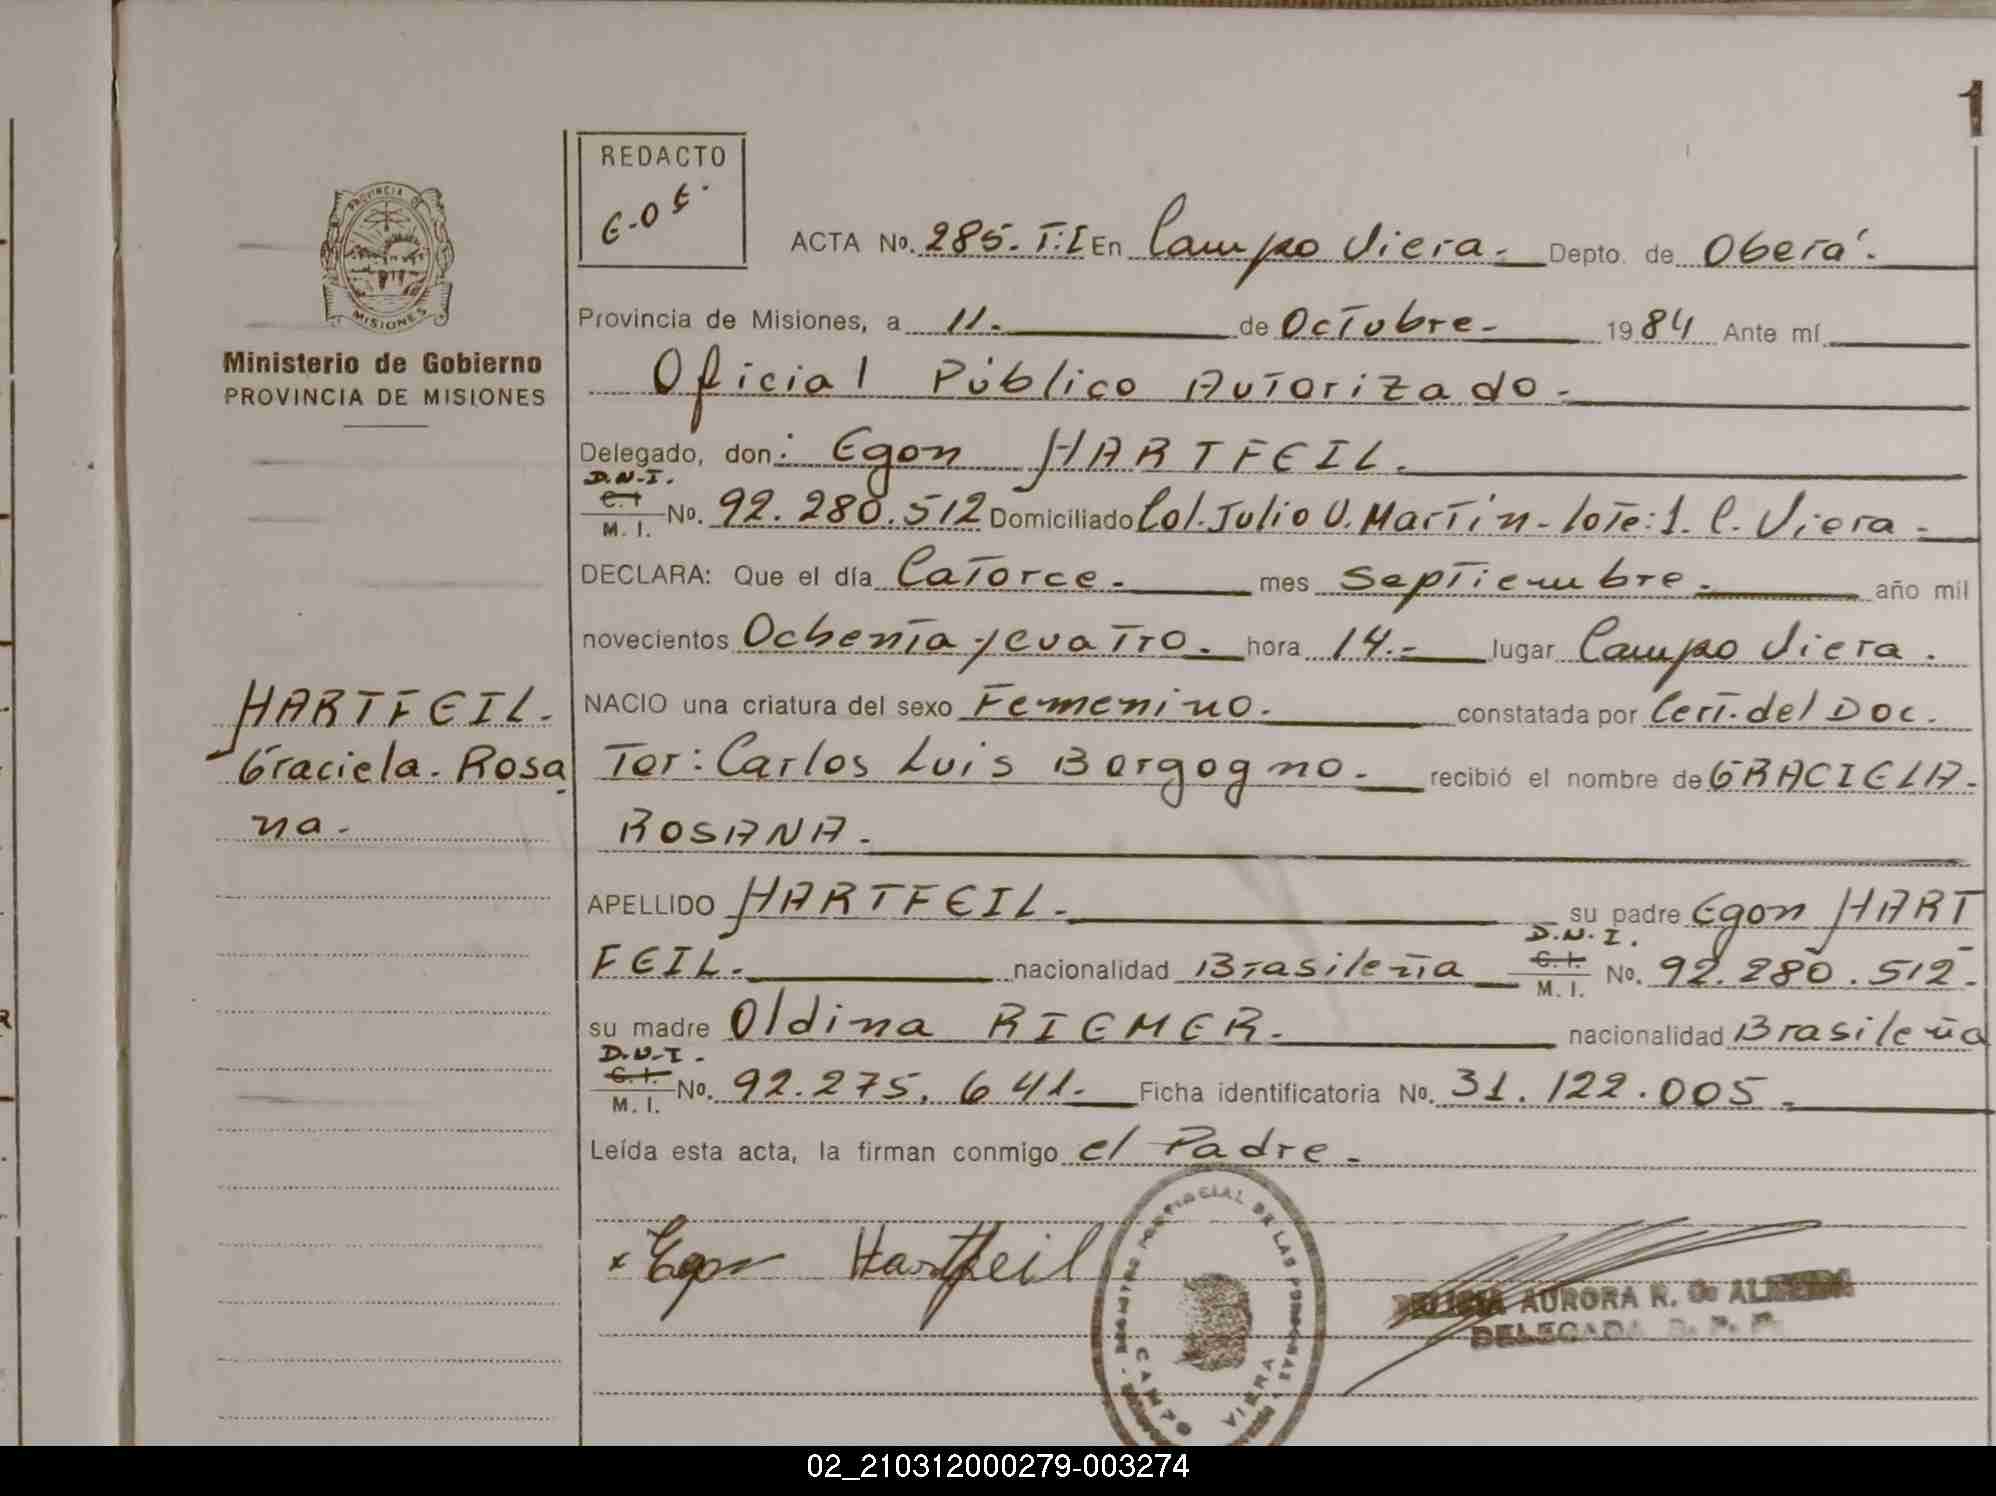 1
REDACTO
E-O5.
PROVINCIA DE
MISIONES
Ministerio de Gobierno
PROVINCIA DE MISIONES
ACTA No. 285. T:I En Campo Viera.- Depto. de Oberá.
Provincia de Misiones, a 11. de Octubre.- 1984 Ante mí
Oficial Público Autorizado.-
Delegado, don: Egon HARTFEIL.
D.N.I.
C.I
M. I. No. 92.280.512 Domiciliado Col. Julio U. Martin-lote:1. C. Viera.-
DECLARA: Que el día Catorce.- mes Septiembre.- año mil
novecientos Ochenta y cuatro. hora 14.- lugar Campo Viera.
NACIO una criatura del sexo Femenino. constatada por Cert. del Doc.
HARTFEIL.
Graciela. Rosa
na.-
Tor: Carlos Luis Borgogno.- recibió el nombre de GRACIELA-
ROSANA.-
APELLIDO HARTFEIL.- su padre Egon HART
FEIL.- nacionalidad Brasileña D.N.I. C.I. M. I. No. 92.280.512.-
su madre Oldina RIEMER.- nacionalidad Brasileña
D.N.I.-
C.I.
M. I. No. 92.275.641.- Ficha identificatoria No. 31.122.005.-
Leída esta acta, la firman conmigo el Padre.-
x Egon Hartfeil
REGISTRO PROVINCIAL DE LAS PERSONAS
CAMPO VIERA
AURORA R. De ALMEIDA
DELEGADA R. P. P.
02_210312000279-003274